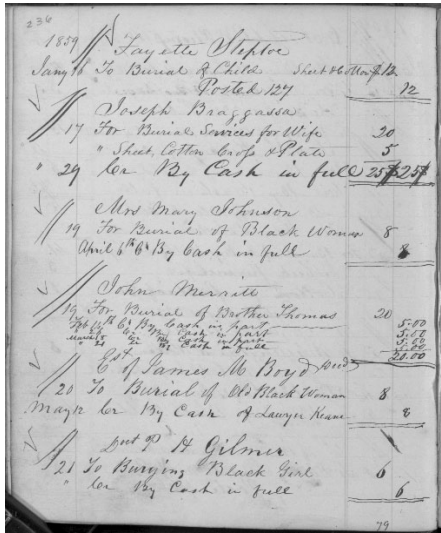 236
1859 Fayette Steptoe
Jany 16 To Burial of Child Sheet & Cotton 12
Posted 127 12
Joseph Braggassa
17 For Burial Services for Wife 20
" Sheet, Cotton Cross & Plate 5
" 29 Cr By Cash in full 25 25
Mrs Mary Johnson
19 For Burial of Black Woman 8
April 6th Cr By Cash in full 8
John Merritt
19 For Burial of Brother Thomas 20
Feb 16th Cr By Cash in part 5.00
Cr By Cash in part 5.00
Cr By Cash in part 5.00
Cr By Cash in full 5.00
20.00
Est of James M Boyd
20 To Burial of Old Black Woman 8
May 12 Cr By Cash of Lawyer Keane 8
H Gilmer
21 To Burying Black Girl 6
" Cr By Cash in full 6
79